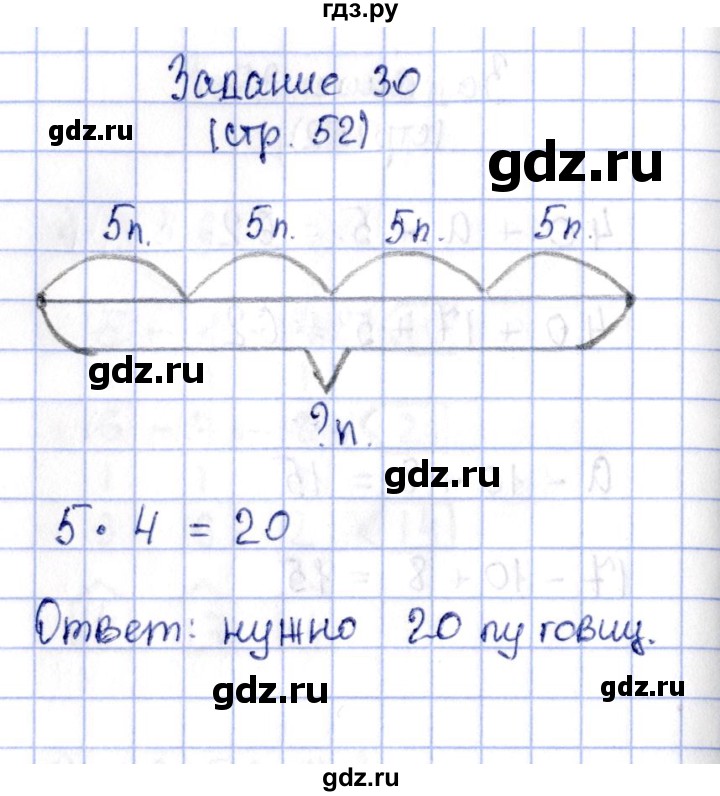 гдз.ру
Задание 30
gdz.ru
(стр. 52)
gdz.ru
5п. 5п. 5п. 5п.
gdz.ru
?п.
gdz.ru
5 · 4 = 20
Ответ: нужно 20 пуговиц.
gdz.ru
gdz.ru
gdz.ru